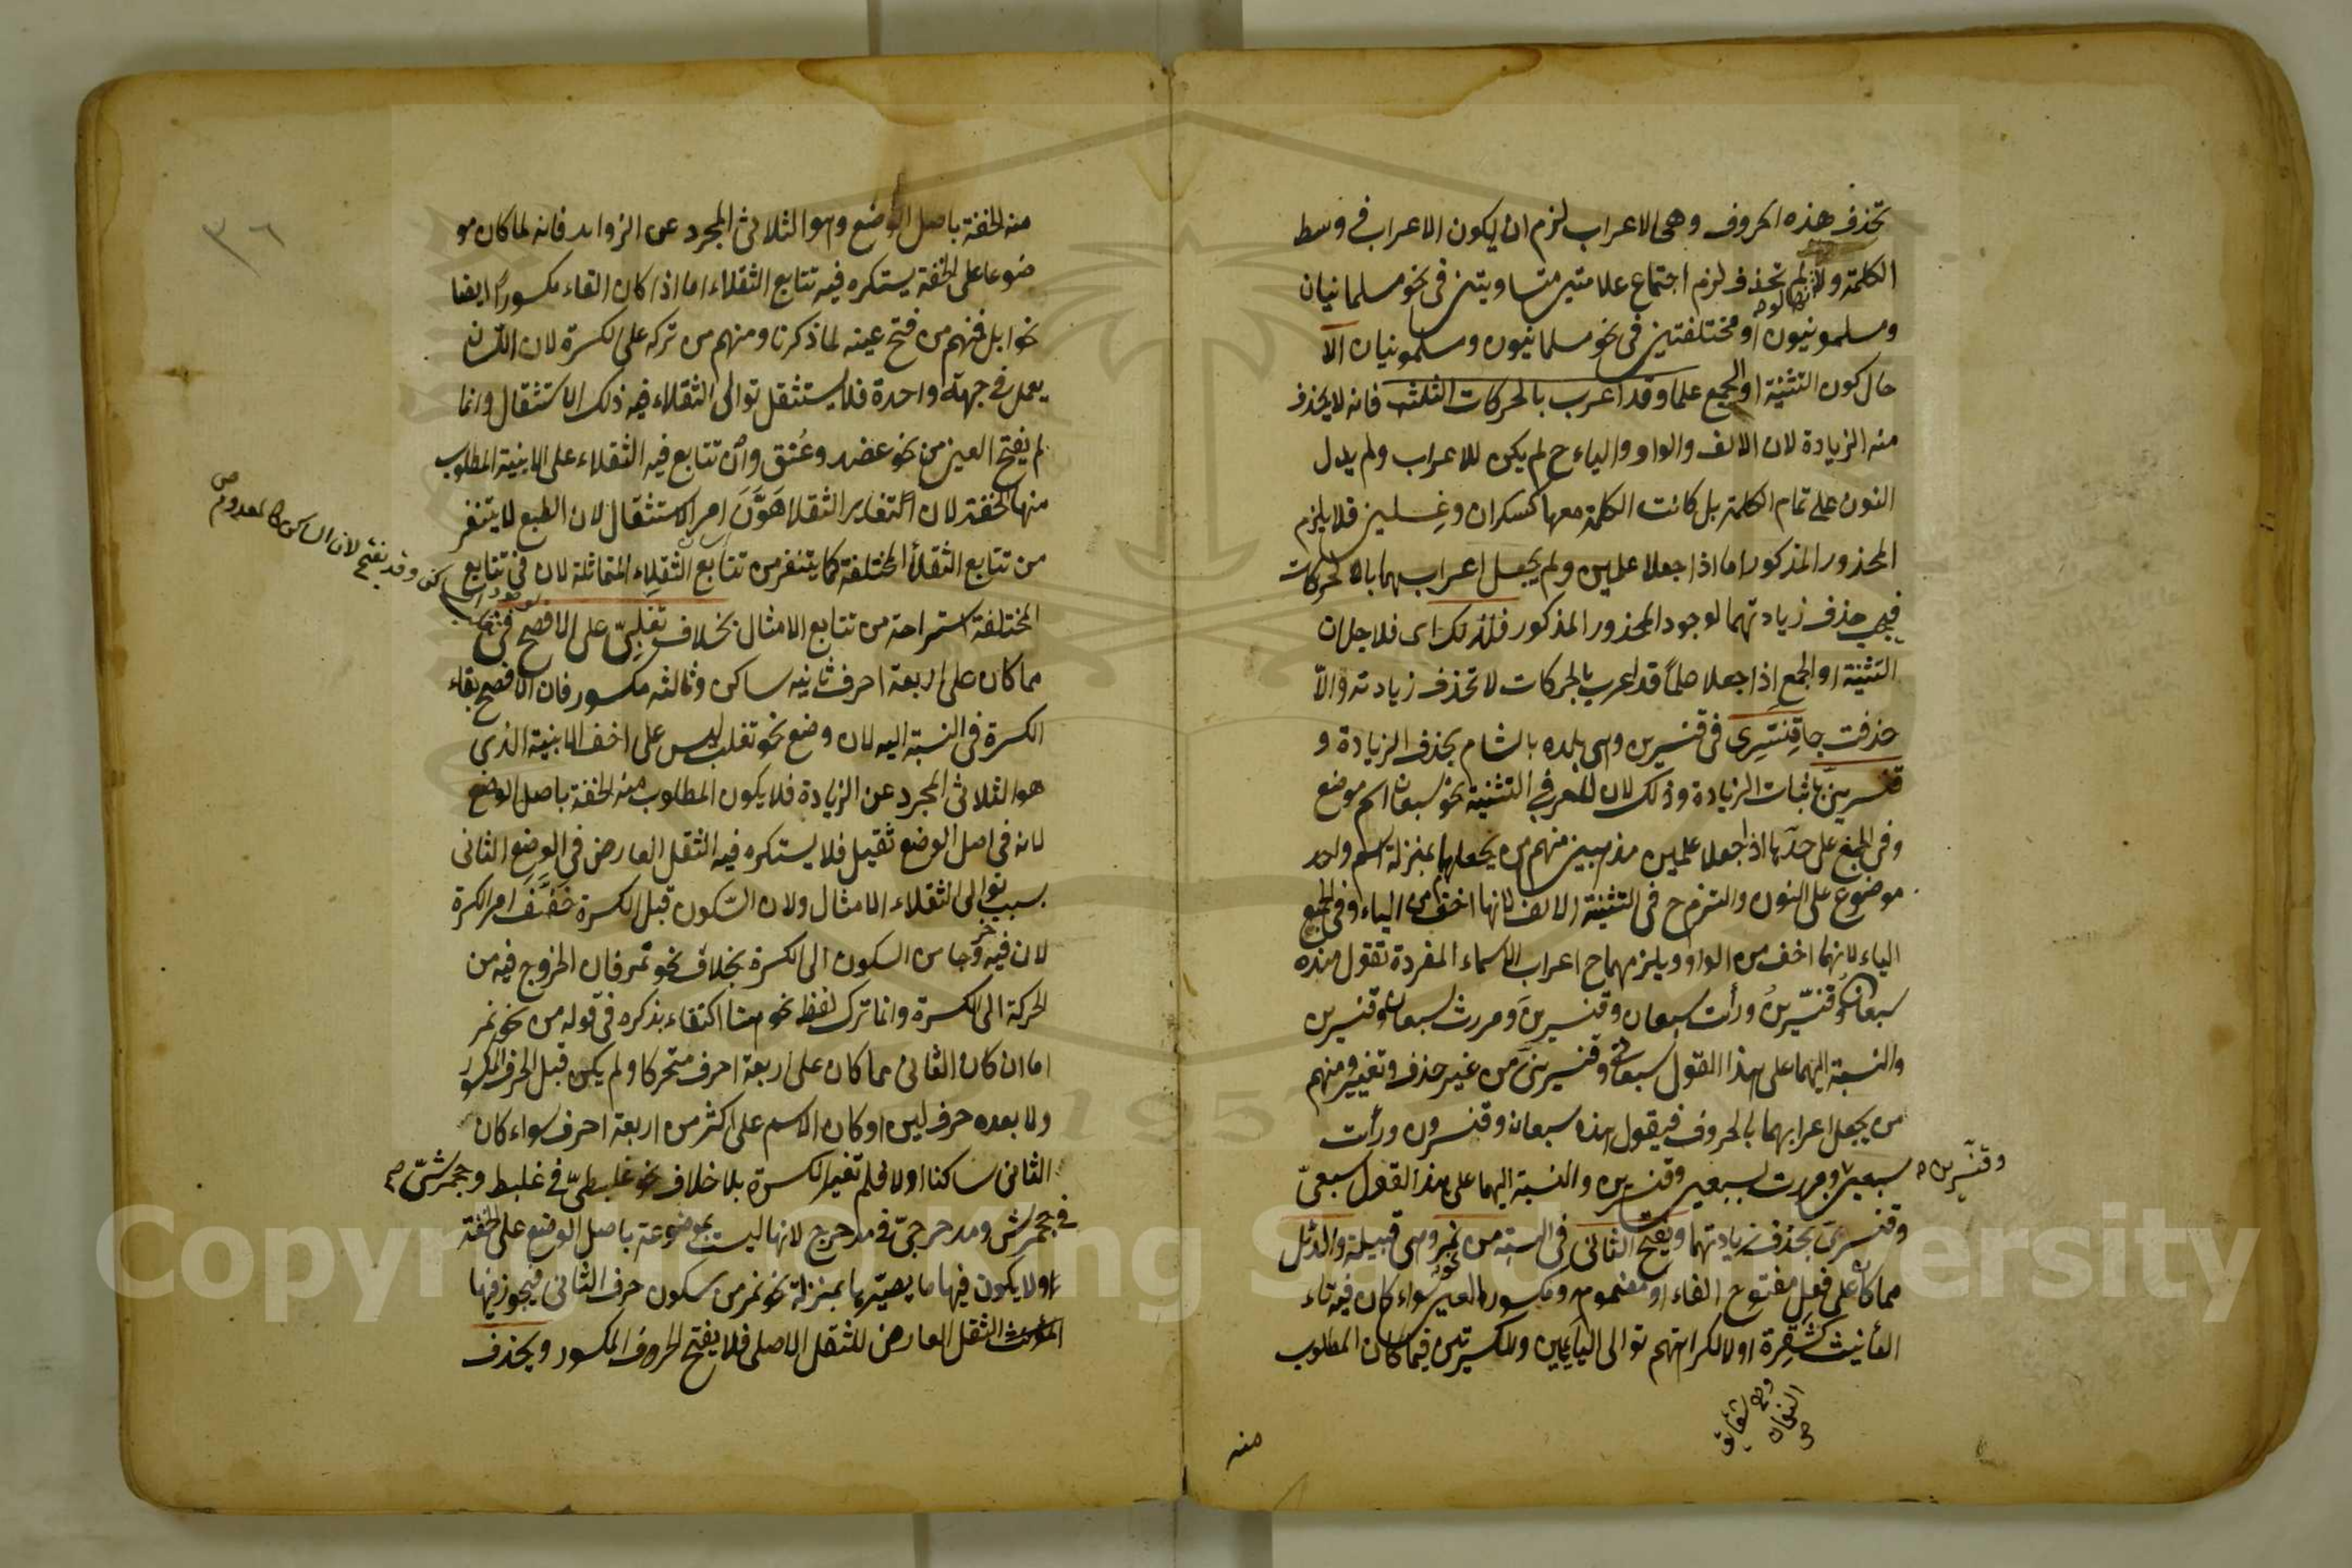 تحذف هذه الحروف وهى الاعراب لزم ان يكون الاعراب فى وسط
الكلمة ولو لم تحذف لزم اجتماع علامتين متساويتين فى نحو مسلمانيان
ومسلمونيون او مختلفتين فى نحو مسلمانيون ومسلمونيان الا
حال كون التثنية او الجمع علما وقد اعرب بالحركات الثلث فانه لا يحذف
منه الزيادة لان الالف والواو والياء ح لم يكن للاعراب ولم يدل
النون على تمام الكلمة بل كانت الكلمة معها كسكران وغسلين فلا يلزم
المحذور المذكور اما اذا جعلا علمين ولم يجعل اعرابهما بالحركات
فيجب حذف زيادتهما لوجود المحذور المذكور فلذلك اى فلاجل ان
التثنية او الجمع اذا جعلا علماً قد اعرب بالحركات لا تحذف زيادته والاّ
حذفت جا قنسرى فى قنسرين وهى بلدة بالشام بحذف الزيادة و
قنسرينى باثبات الزيادة وذلك لان للعرب فى التثنية نحو سبعان اسم موضع
وفى الجمع على حدها اذا جعلا علمين مذهبين منهم من يجعلهما بمنزلة اسم واحد
موضوع على النون والتزم ح فى التثنية الالف لانها اخف من الياء وفى الجمع
الياء لانهما اخف من الواو ويلزمهما ح اعراب الاسماء المفردة تقول هذه
سبعانُ وقنّسرينُ ورأت سبعان وقنسرينَ ومررت بسبعان وقنسرين
والنسبة اليهما على هذا القول سبعانى وقنسرينى من غير حذف وتغيير ومنهم
من يجعل اعرابهما بالحروف فيقول هذه سبعان وقنسرون ورأت
سبعين ومررت بسبعين وقنسرين والنسبة اليهما على هذا القول سبعىّ
وقنّسرين
وقنسرىّ بحذف زيادتهما ويفتح الثانى فى النسبة من نمر وهى قبيلة والدئل
مما كان على فعل مفتوح الفاء او مضموم ومكسورة العين سواء كان فيه تاء
التأنيث كشقرة او لا لكراهتهم توالى اليائين والكسرتين فيما كان المطلوب
منه
٣٦
منه الخفة باصل الوضع وهو الثلاثى المجرد عن الزوايد فانه لما كان مو
ضوعا على الخفة يستكره فيه تتابع الثقلاء اما اذا كان الفاء مكسوراً ايضا
نحو ابل فمنهم من فتح عينه لما ذكرنا ومنهم من تركه على الكسرة لان اللسان
يعمل فى جهة واحدة فلا يستثقل توالى الثقلاء فيه ذلك الاستثقال وانما
لم يفتح العين من نحو عضد وعُنق وان تتابع فيه الثقلاء على الابنية المطلوب
منها الخفة لان التغاير الثقلا هَوَّنَ امر الاستثقال لان الطبع لا يتنفر
من تتابع الثقلأ المختلفة كما يتنفر من تتابع الثقلاء المتماثلة لان فى تتابع
المختلفة استراحة من تتابع الامثال بخلاف تغلبىّ على الافصح
مما كان على اربعة احرف ثانيه ساكن وثالثه مكسور فان الافصح بقاء
الكسرة فى النسبة اليه لان وضع نحو تغلب ليس على اخف الابنية الذى
هو الثلاثى المجرد عن الزيادة فلا يكون المطلوب منه الخفة باصل الوضع
لانه فى اصل الوضع ثقيل فلا يستكره فيه الثقل العارض فى الوضع الثانى
بسبب توالى الثقلاء الامثال ولان السّكون قبل الكسرة خَفَّفَ امر الكسرة
لان فيه خروجا من السكون الى الكسرة بخلاف نحو نمر فان الخروج فيه من
الحركة الى الكسرة وانما ترك لفظ نحو هنا اكتفاء بذكره فى قوله من نحو نمر
اما ان كان الثانى مما كان على اربعة احرف متحركا ولم يكن قبل الحرف المكسور
ولا بعده حرف لين او كان الاسم على اكثر من اربعة احرف سواء كان
الثانى ساكنا او لا فلم تغير الكسرة بلا خلاف نحو علبطىّ فى علبط وجحمرشىّ
فى جحمرش ومدحرجىّ فى مدحرج لانها ليست بموضوعة باصل الوضع على الخفة
اولا يكون فيها ما يصيّرها بمنزلة نحو نمر من سكون حرف الثانى فيجوز فيها
الثقل العارض للثقل الاصلى فلا يفتح الحروف المكسور ويحذف
وقد يفتح لان الساكن كالمعدوم